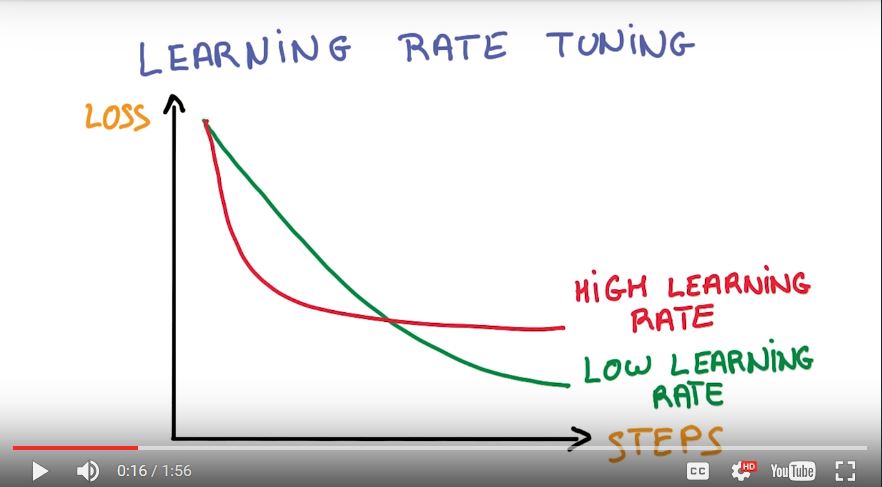 LEARNING RATE TUNING
LOSS
HIGH LEARNING
RATE
LOW LEARNING
RATE
STEPS
0:16 / 1:56
CC
HD
YouTube